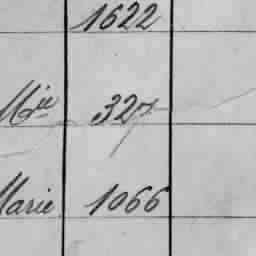 1622
Mie 327
Marie 1066